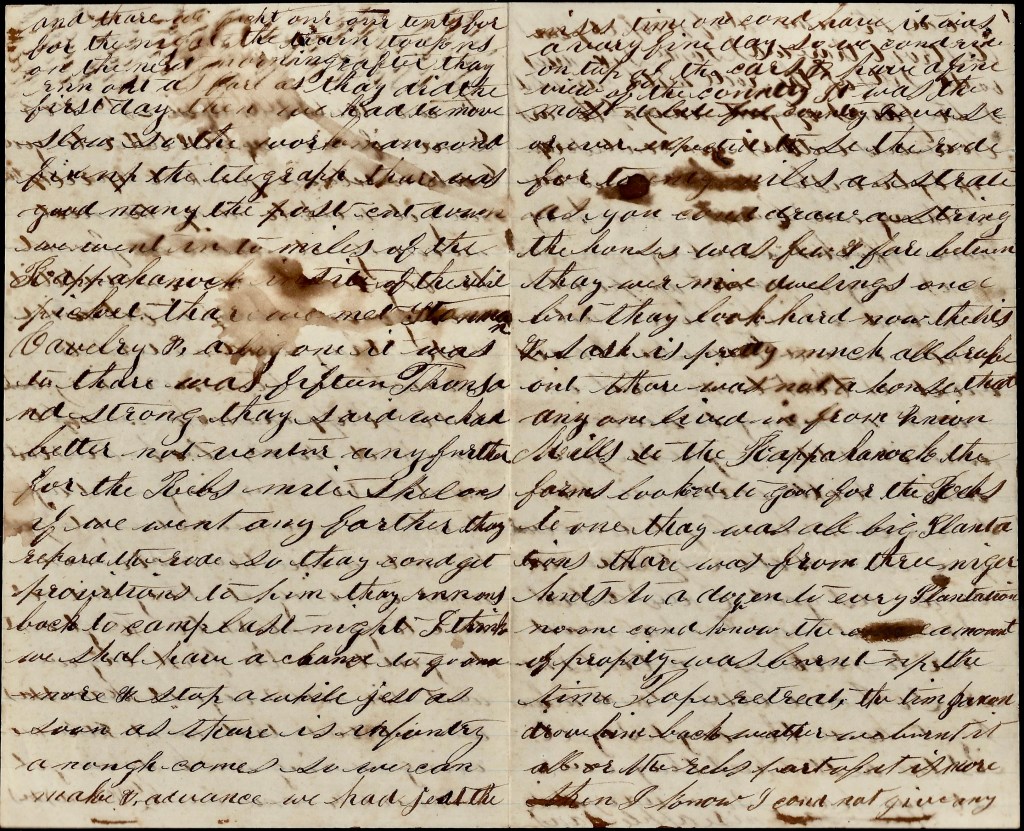 and thare we pight our gur tents for
for the night the train took us
on the next morning after thay
run out as fare as thay did the
first day then we had to move
slow so the workman cond
fix up the telegraph thare was
good many the post cut down
we went in to miles of the
Rappahanock in site of the rebil
picket thare we met
Cavelry & a big one it was
to thare was fiftun Thousa
nd strong thay said we had
better not ventur any further
for the Rebs mite Shel ons
if we went any farther thay
repard the rode so thay cond get
provitions to him thay run ons
back to camp last night I think
we shal have a chance to go onne
more & stop a while jest as
soon as thare is infontry
a nough comes so we can
make & advance we had jest the
nises time one cond have it was
a vary fine day so we cond ride
on top of the cars & have a fine
view of the country It was the
most country I ever se
or ever expected to se the rode
for miles as strate
as you cond draw a string
the houses was few & fare betwen
thay wer nice dwelings once
but thay look hard now the lits
& sash is pretty much all broke
out thare was not a house that
any one lived in from Union
Mills to the Rappahanock the
farms looked to good for the Rebs
to one thay was all big Planta
tions thare was from three niger
huts to a dozen to evry Plantation
no one cond know the amount
of propity was burnt up the
time Pope retreat, the tim Jaxon
drove him back weather we burnt it
all or the rebs part of it is more
then I know I cond not give any